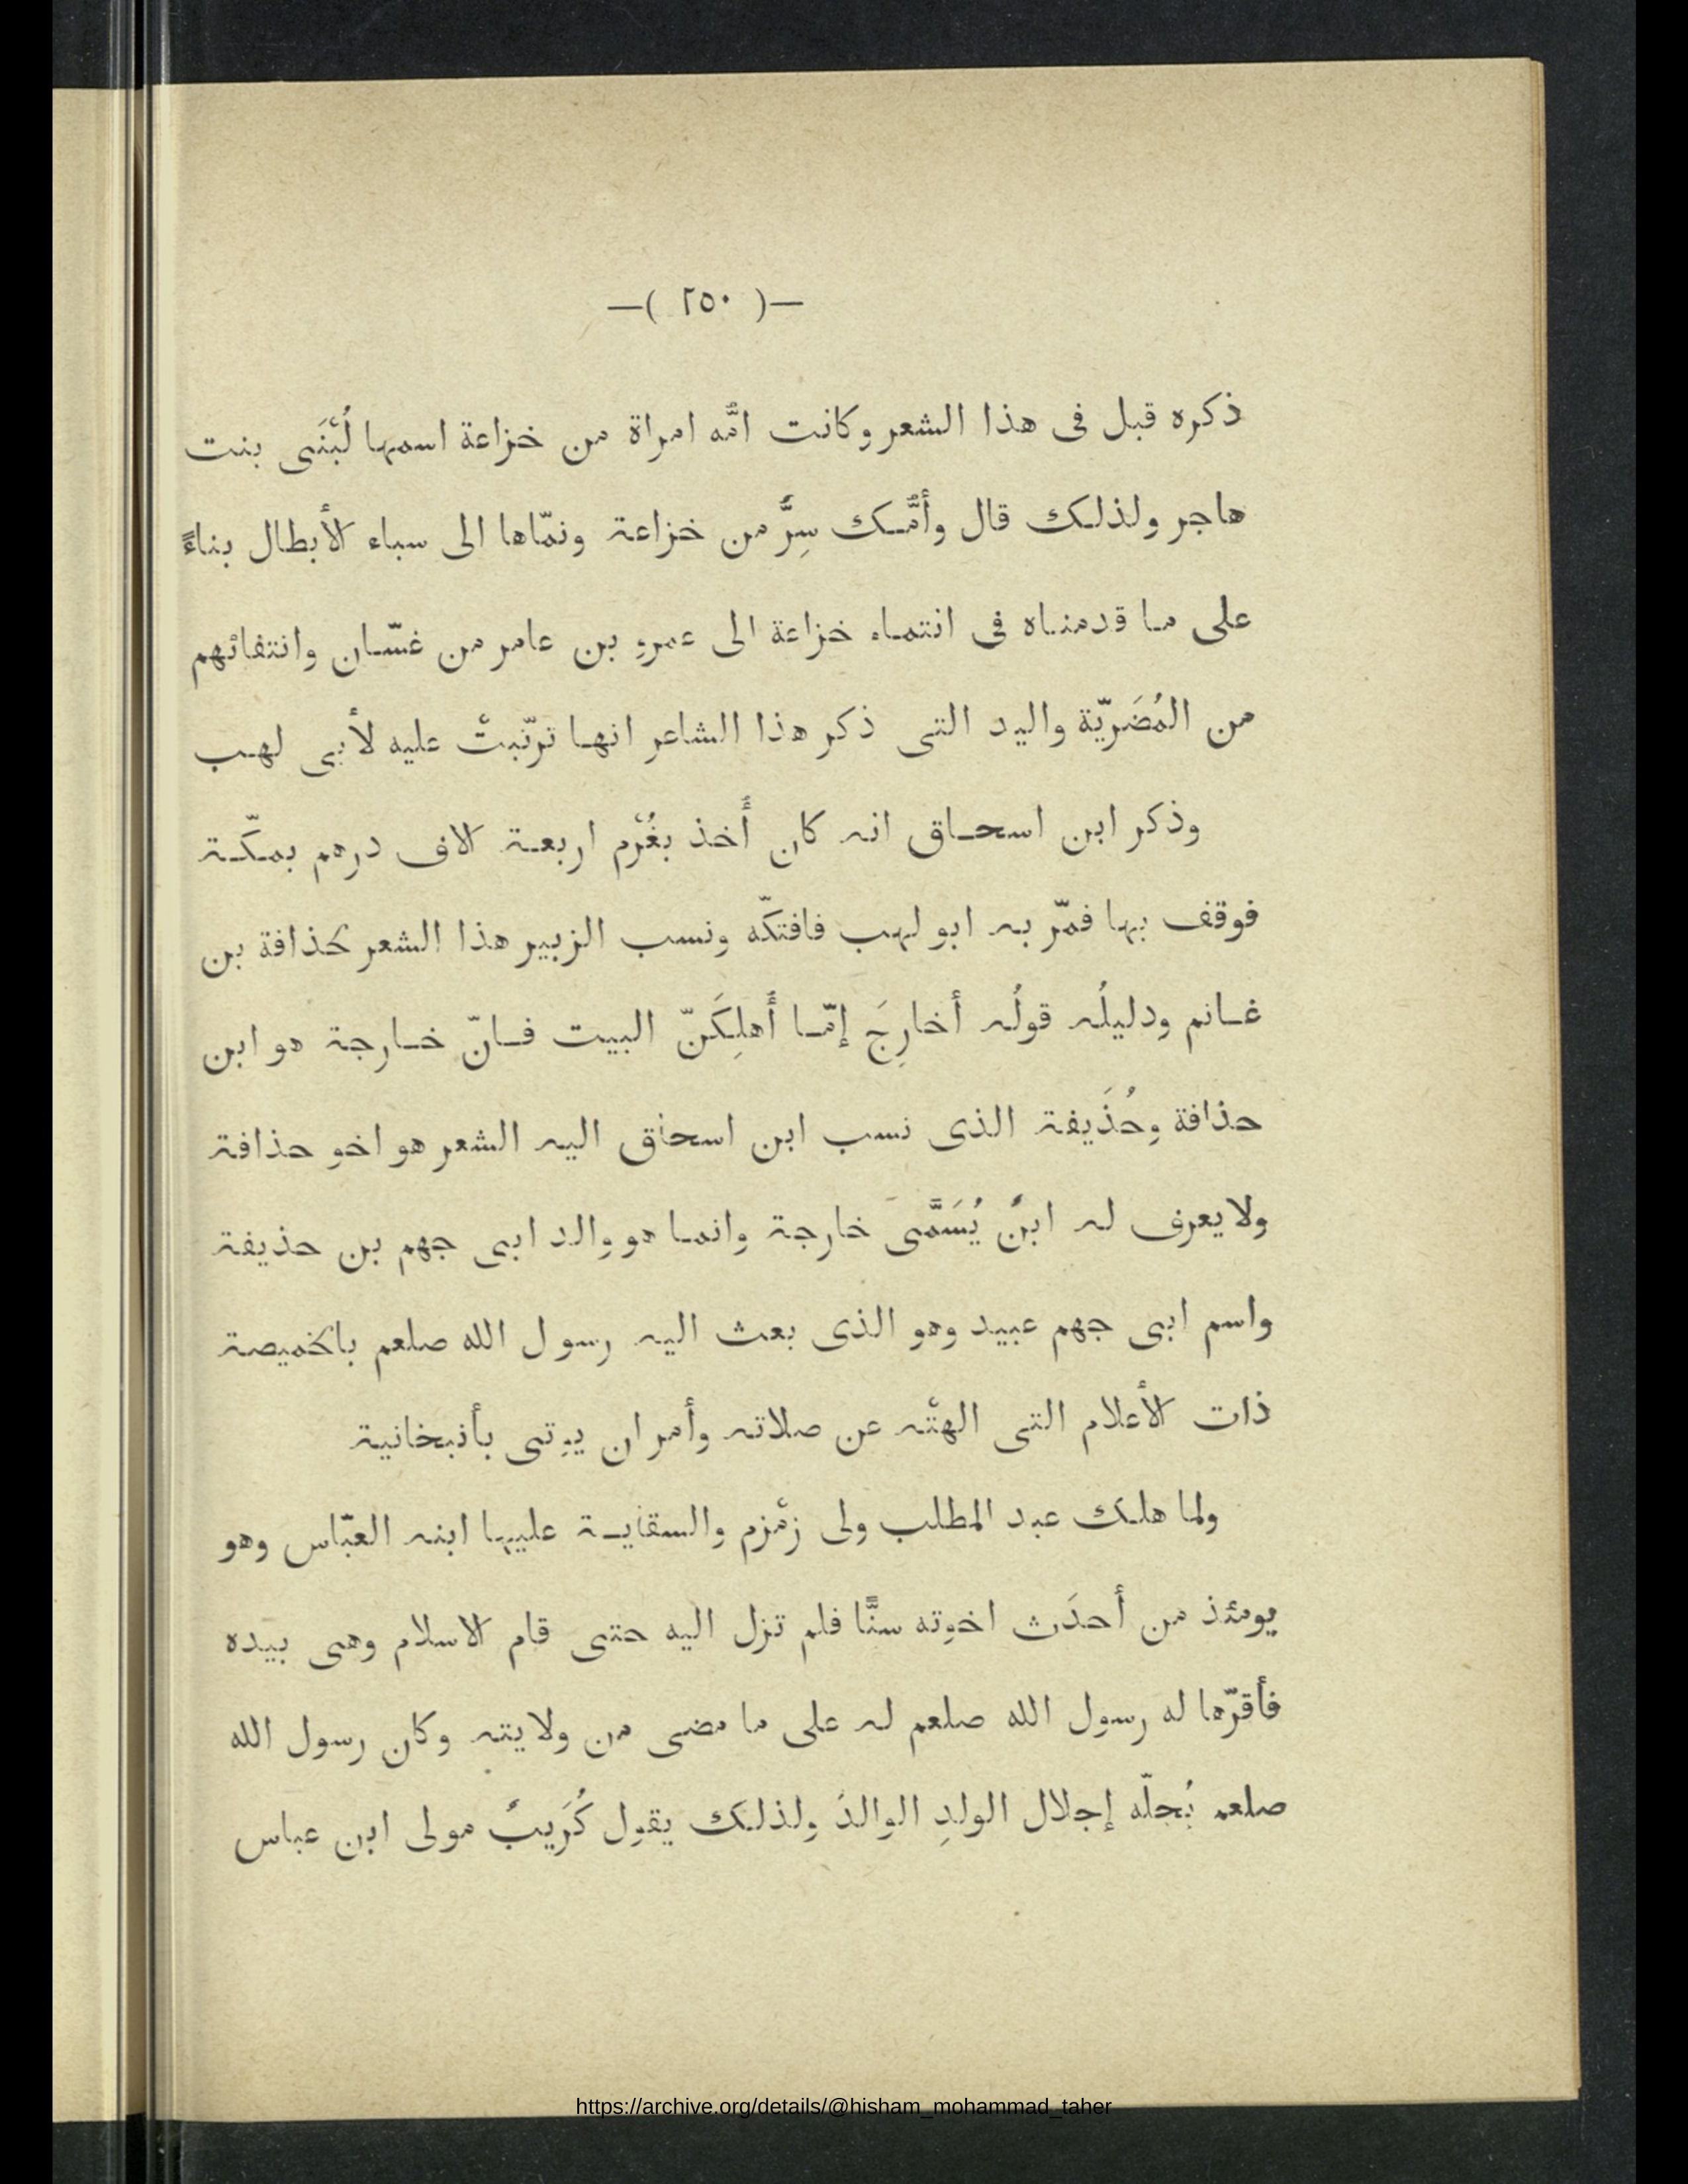 —( ٢٥٠ )—
ذكره قبل فى هذا الشعر وكانت امّه امراة من خزاعة اسمها لُبْنَى بنت
هاجر ولذلك قال وأمّك سِرٌّ من خزاعة ونمّاها الى سباء الأبطال بناءً
على ما قدمناه فى انتماء خزاعة الى عمرو بن عامر من غسّان وانتفائهم
من المُضَريّة واليد التى ذكر هذا الشاعر انها ترتّبتْ عليه لأبى لهب
وذكر ابن اسحاق انه كان أُخذ بغُرْم اربعة الاف درهم بمكّة
فوقف بها فمّر به ابو لهب فافتكّه ونسب الزبير هذا الشعر لحذافة بن
غانم ودليلُه قولُه أخارِجَ إمّا أَهلِكَنّ البيت فانّ خارجة هو ابن
حذافة وحُذَيفة الذى نسب ابن اسحاق اليه الشعر هو اخو حذافة
ولا يعرف له ابنٌ يُسَمَّى خارجة وانما هو والد ابى جهم بن حذيفة
واسم ابى جهم عبيد وهو الذى بعث اليه رسول الله صلعم بالخميصة
ذات الأعلام التى الهتْه عن صلاته وأمر ان يوتى بأنبخانية
ولما هلك عبد المطلب ولى زمْزم والسقاية عليها ابنه العبّاس وهو
يومئذ من أحدَث اخوته سنًّا فلم تزل اليه حتى قام الاسلام وهى بيده
فأقرّها له رسول الله صلعم له على ما مضى من ولايته وكان رسول الله
صلعم يُجلّه إجلال الولدِ الوالدَ ولذلك يقول كُرَيبٌ مولى ابن عباس
https://archive.org/details/@hisham_mohammad_taher